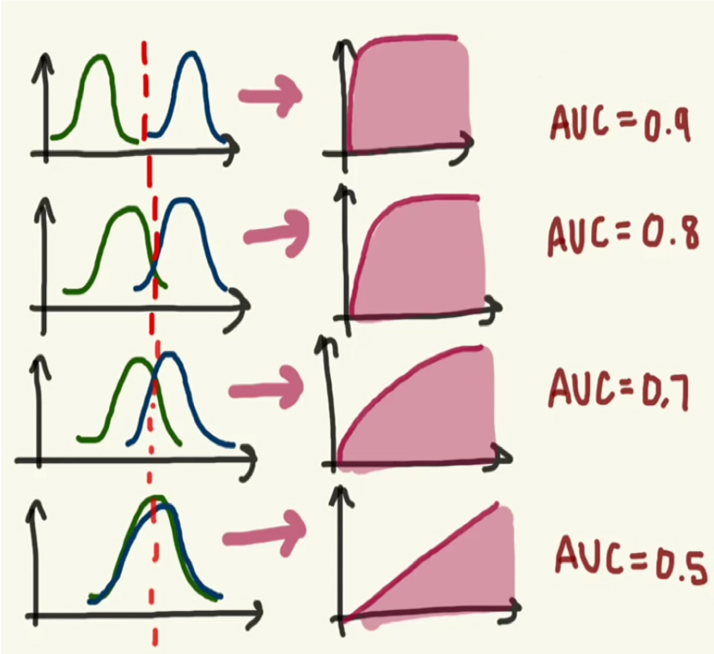 AUC = 0.9
AUC = 0.8
AUC = 0.7
AUC = 0.5